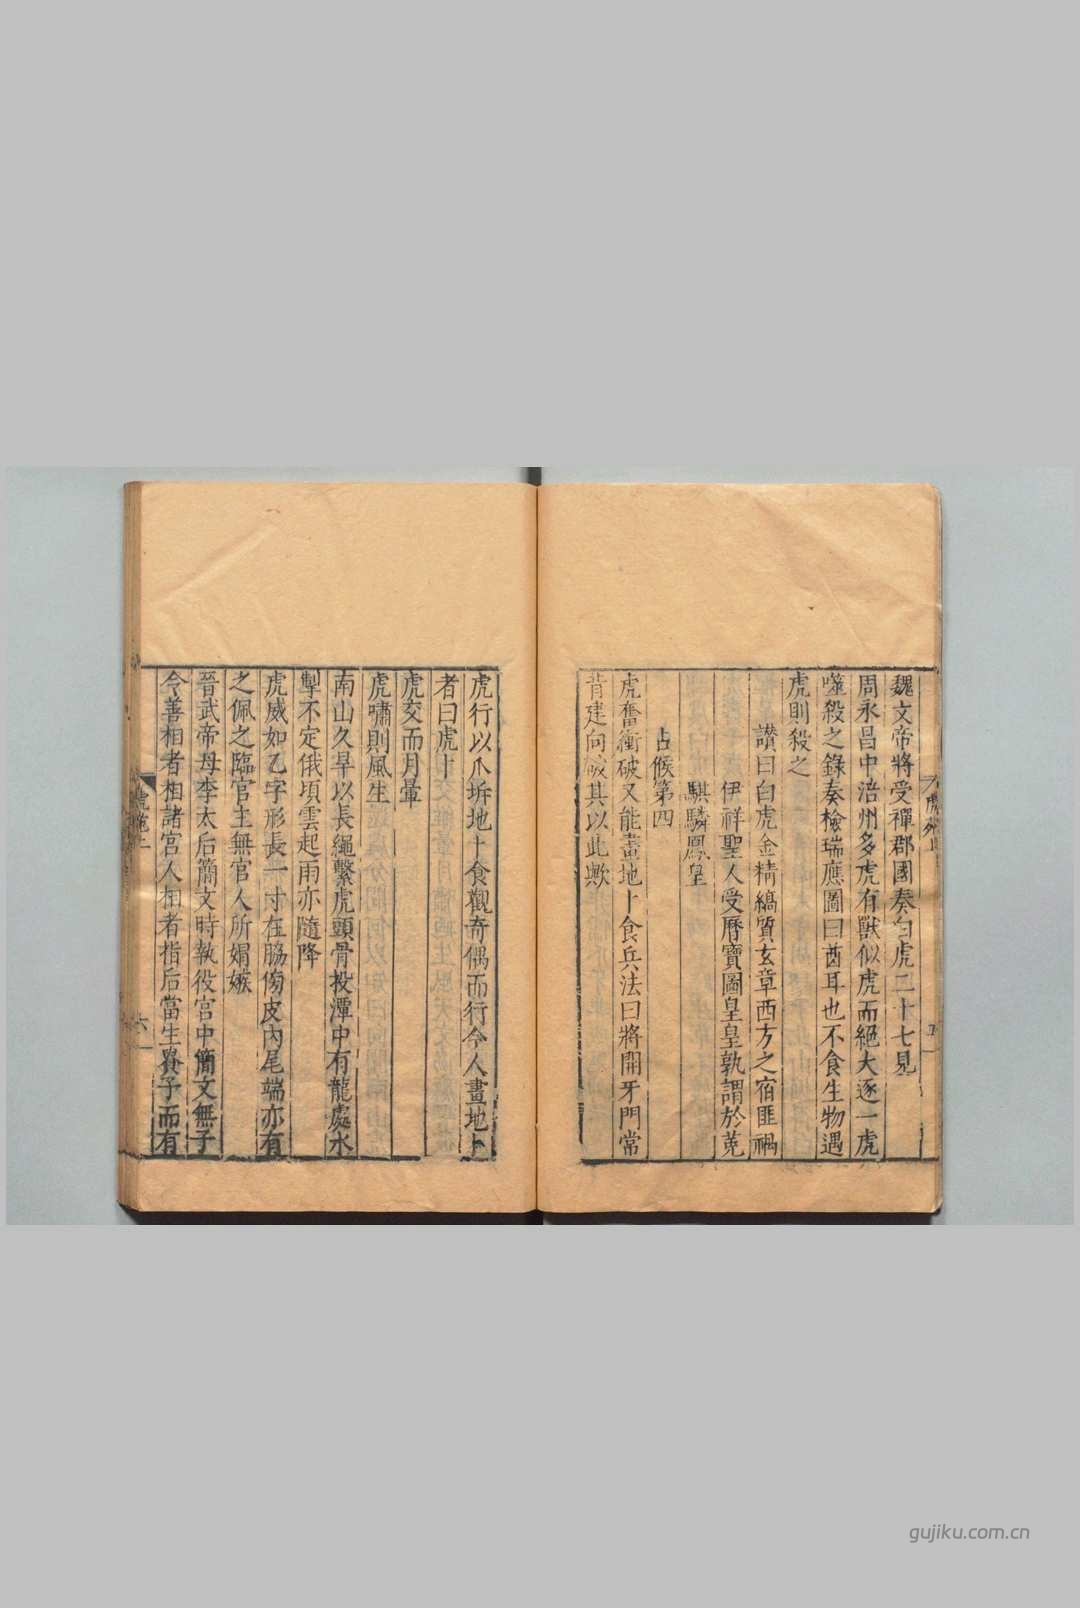 魏文帝將受禪郡國奏白虎二十七見
周永昌中涪州多虎有獸似虎而絕大逐一虎
噬殺之錄奏檢瑞應圖曰酋耳也不食生物遇
虎則殺之
讃曰白虎金精縞質玄章西方之宿匪禍
伊祥聖人受曆寶圖皇皇孰謂於菟
騏驎鳳皇
占候第四
虎奮衝破又能畫地卜食兵法曰將開牙門常
背建向破其以此歟
虎行以爪坼地卜食觀奇偶而行今人畫地卜
者曰虎卜
虎交而月暈
虎嘯則風生
南山久旱以長繩繫虎頭骨投潭中有龍處水
掣不定俄頃雲起雨亦隨降
虎威如乙字形長一寸在脇傍皮內尾端亦有
之佩之臨官主無官人所媢嫉
晉武帝母李太后簡文時執役宮中簡文無子
令善相者相諸宮人相者指后當生貴子而有
虎苑上
六
gujiku.com.cn